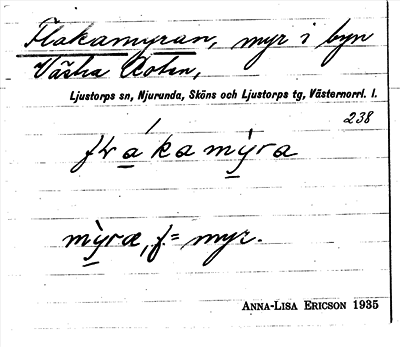 Flakamyran, myr i byn
Västra Aoten,
Ljustorps sn, Njurunda, Sköns och Ljustorps tg, Västernorrl. l.
238
kamỳra
mỳra, f = myr.
ANNA-LISA ERICSON 1935